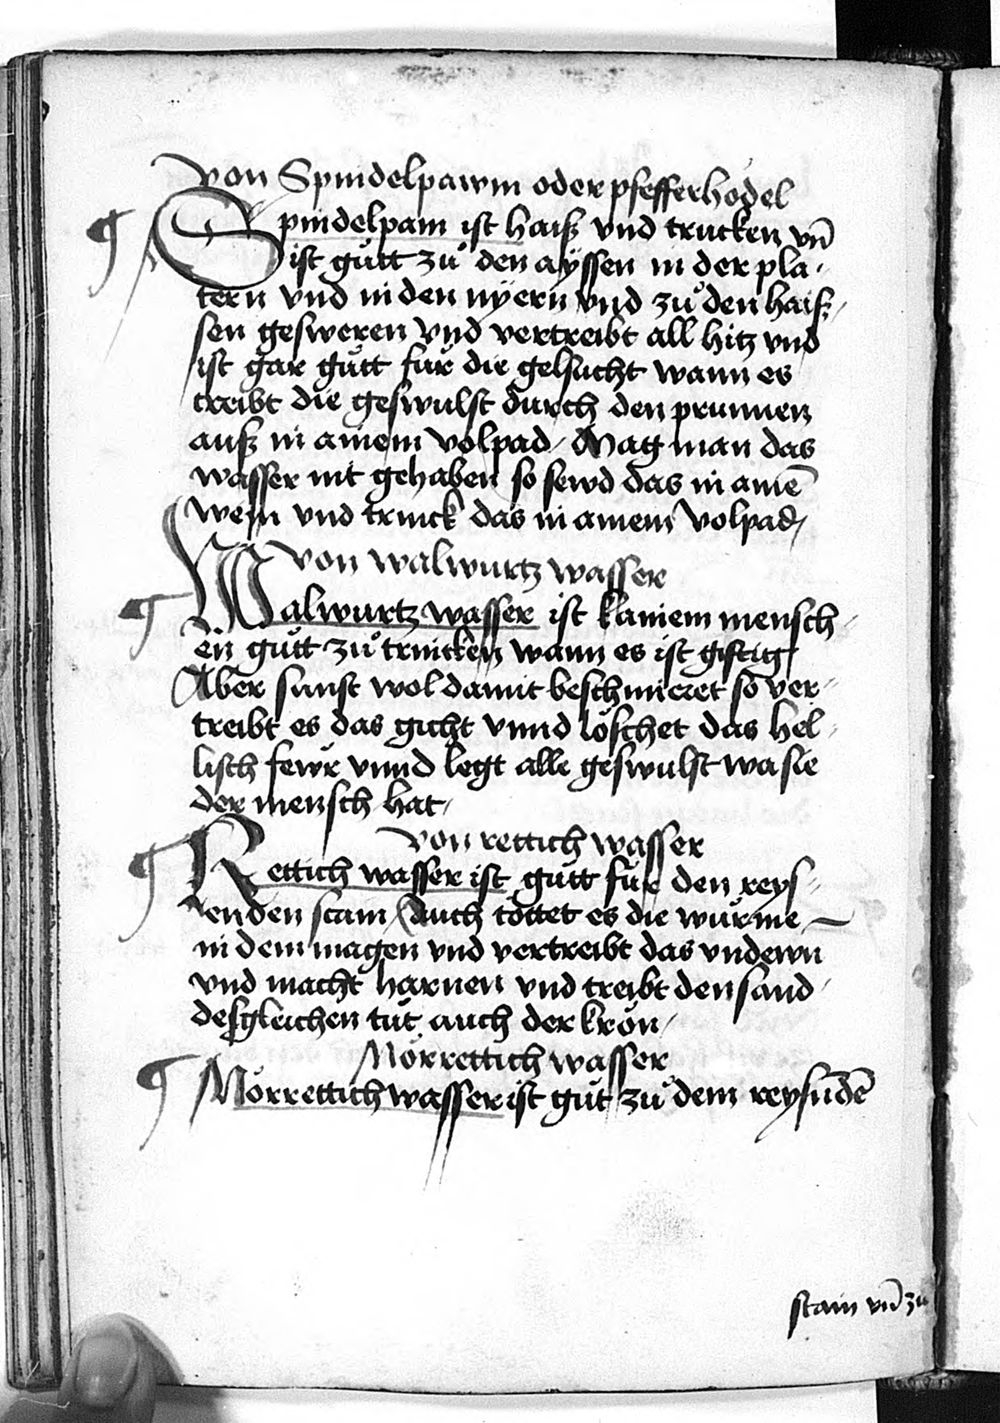 Von Spindelpawm oder pfefferhödel
¶ Spindelpam ist haiß vnd trucken vn̄
ist gůtt zů den aÿssen in der pla-
tern vnd in den nÿern vnd zů den haiß-
sen gesweren Vnd vertreibt all hitz vnd
ist gar gůtt fur die gelsucht wann es
treibt die geswulst durch den prunnen
auß in ainem Volpad / Mag man das
wasser nit gehaben so sewd das in aine͂
wein vnd trinck das in ainem Volpad /
Von walwurtz wasser
¶ Walwurtz wasser ist klainem mensch-
en gůtt zů trincken wann es ist giftig
Aber sunst wol damit beschmieret so ver-
treibt es das gicht vnnd löschet das hel-
lisch fewr vnnd legt alle geswulst wa sie
der mensch hat /
Von rettich wasser
¶ Rettich wasser ist gůtt fur den reys-
enden stain / Auch töttet es die wurme
in dem magen vnd vertreibt das vndewn
vnd macht harnen vnd treibt den sand
desgleichen tůt auch der krön /
Mörrettich wasser
¶ Mörrettich wasser ist gůt zů dem reysn̄de͂
stain vn̄ zu